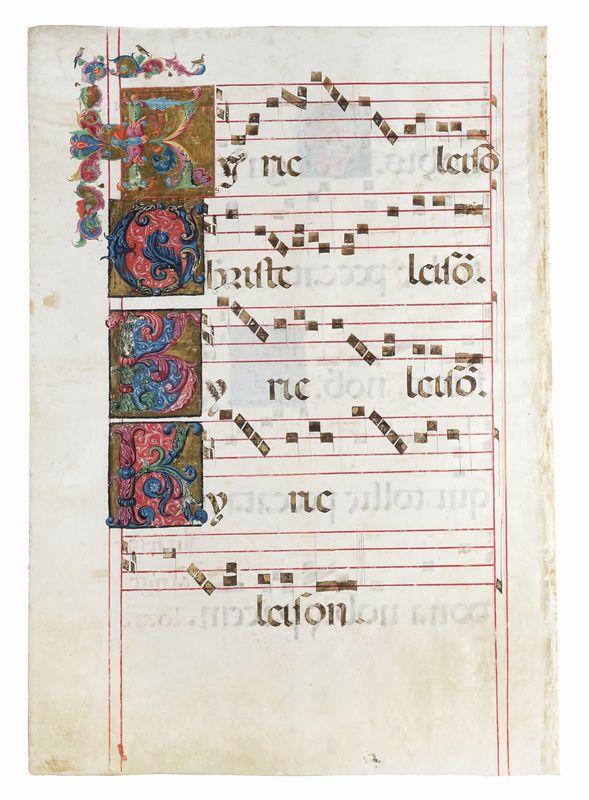 Kyrie leisō
Christe leisō.
Kyrie leisō.
Kyrie
leison.